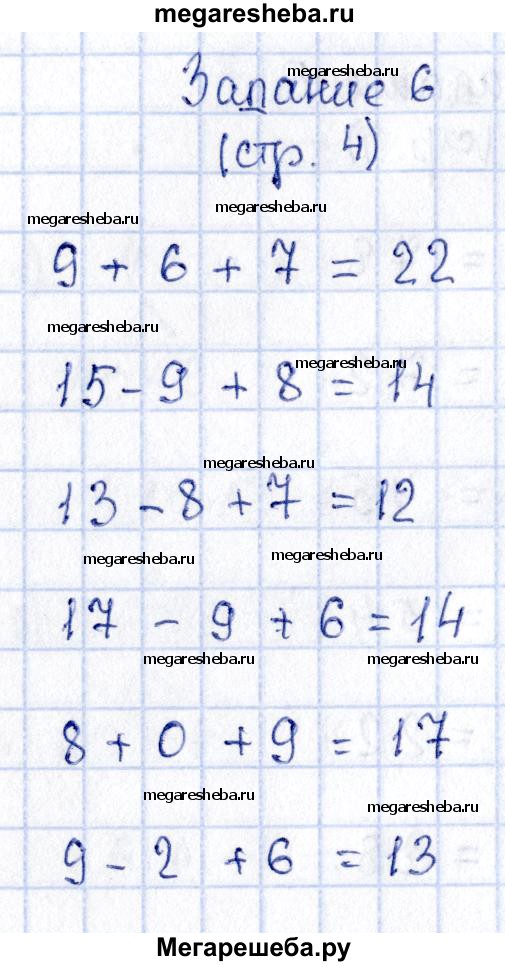 megaresheba.ru
megaresheba.ru
Задание 6
(стр. 4)
megaresheba.ru
megaresheba.ru
9 + 6 + 7 = 22
megaresheba.ru
megaresheba.ru
15 - 9 + 8 = 14
megaresheba.ru
13 - 8 + 7 = 12
megaresheba.ru
megaresheba.ru
17 - 9 + 6 = 14
megaresheba.ru
megaresheba.ru
8 + 0 + 9 = 17
megaresheba.ru
megaresheba.ru
9 - 2 + 6 = 13
Мегарешеба.ру